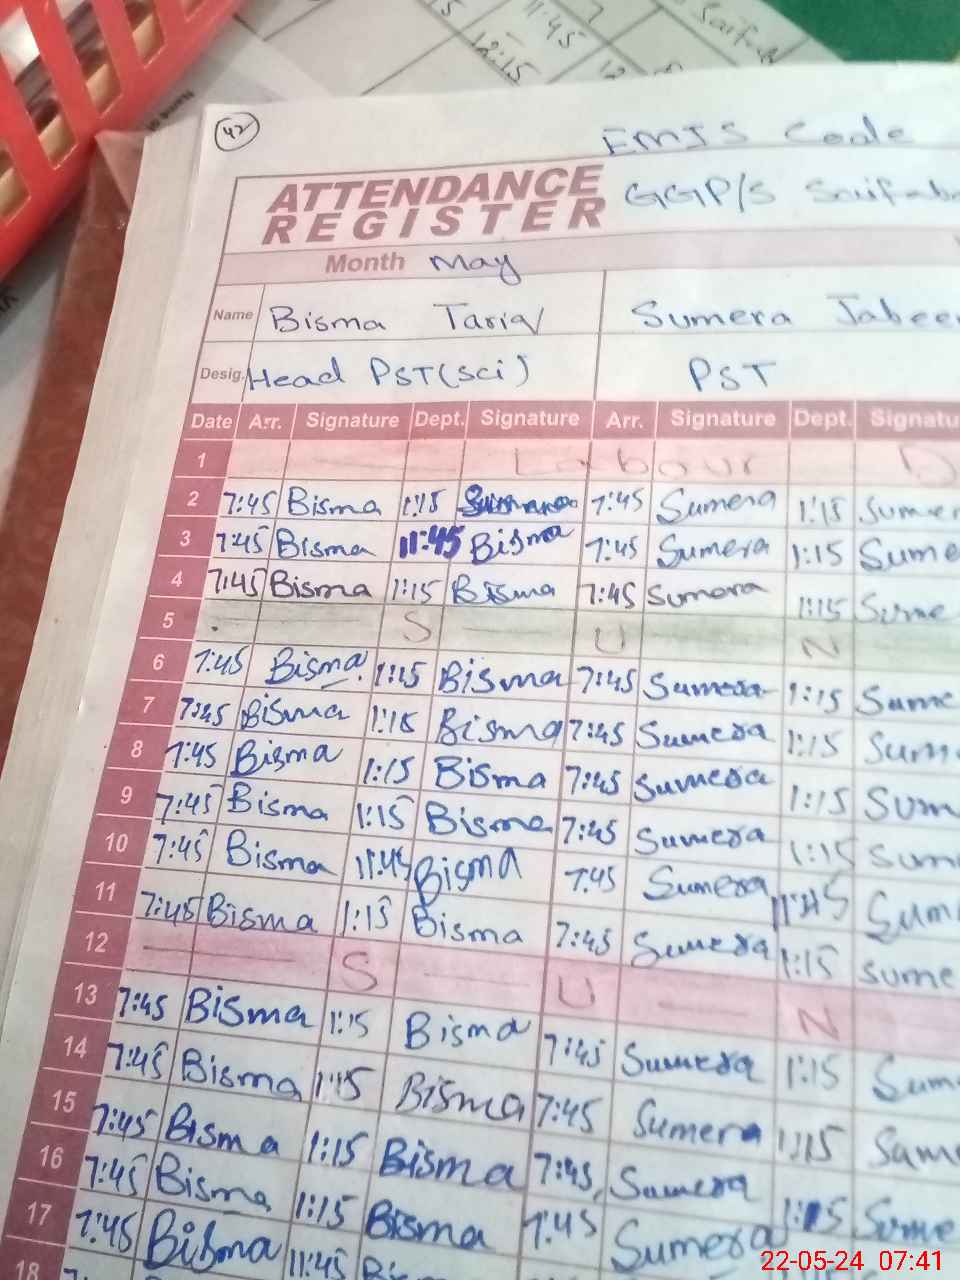 11:45
7
12:15
12
42
EMIS Code
ATTENDANCE
REGISTER
GGP/S
Month May
Name Bisma Tariq Sumera Jabeen
Desig. Head PST(sci) PST
Date Arr. Signature Dept. Signature Arr. Signature Dept. Signatu
1 Labour D
2 7:45 Bisma 1:15 7:45 Sumera 1:15 Sumer
3 7:45 Bisma 11:45 Bisma 7:45 Sumera 1:15 Sume
4 7:45 Bisma 1:15 Bisma 7:45 Sumera 1:15 Sume
5 S U N
6 7:45 Bisma 1:15 Bisma 7:45 Sumera 1:15 Sume
7 7:45 Bisma 1:15 Bisma 7:45 Sumera 1:15 Sum
8 7:45 Bisma 1:15 Bisma 7:45 Sumera 1:15 Sum
9 7:45 Bisma 1:15 Bisma 7:45 Sumera 1:15 Sum
10 7:45 Bisma 11:45 Bisma 7:45 Sumera 11:45 Sum
11 7:45 Bisma 1:15 Bisma 7:45 Sumera 1:15 Sume
12 S U N
13 7:45 Bisma 1:15 Bisma 7:45 Sumera 1:15 Sum
14 7:45 Bisma 1:15 Bisma 7:45 Sumera 1:15 Sum
15 7:45 Bisma 1:15 Bisma 7:45 Sumera 1:15 Sume
16 7:45 Bisma 1:15 Bisma 7:45 Sumera
17 7:45 Bisma 11:45
18
22-05-24 07:41